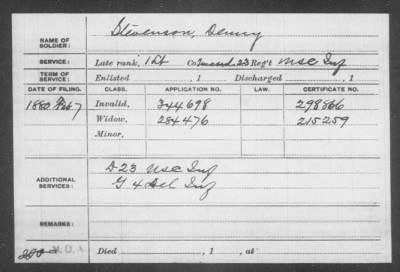 NAME OF SOLDIER: Stevenson, Denny
SERVICE: Late rank, 1 Lt Co Unassd. 23 Reg't U S C Inf
TERM OF SERVICE: Enlisted , 1 Discharged , 1
DATE OF FILING. CLASS. APPLICATION NO. LAW. CERTIFICATE NO.
1880 Feb 7 Invalid, 344698 298866
Widow, 284476 215259
Minor,
ADDITIONAL SERVICES: D 23 U S C Inf
G 4 Del Inf
REMARKS:
Died , 1 , at